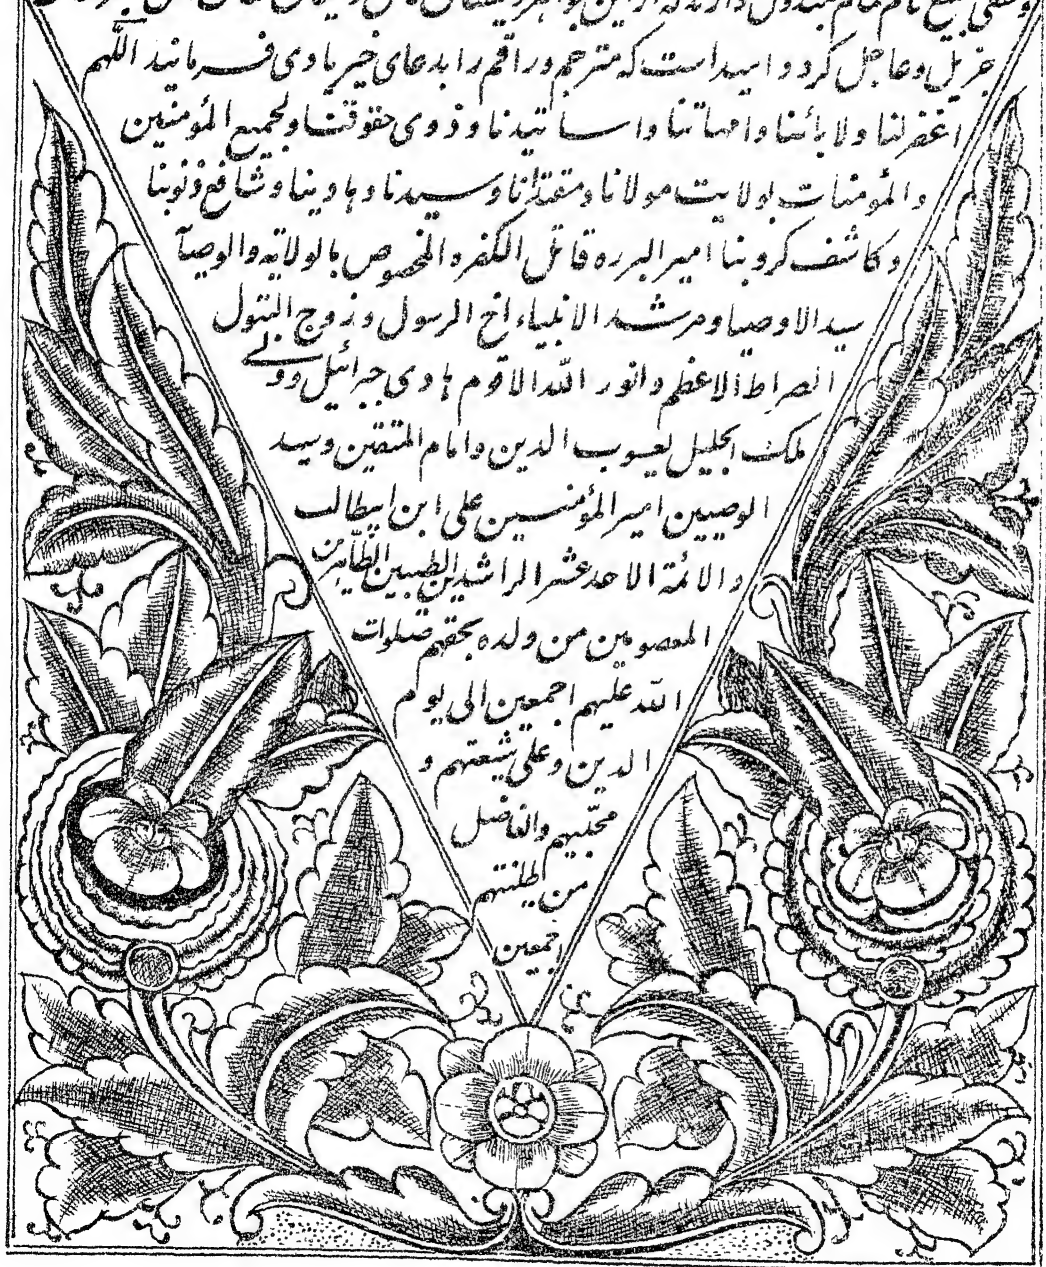 جزیل و عاجل گردد و امید است که مترجم و راقم را بدعای خیر یادی فرمایند اللهم
اغفر لنا ولابائنا وامهاتنا واساتیدنا وذوی حقوقنا ولجمیع المؤمنین
والمؤمنات بولایت مولانا ومقتدانا وسیدنا وهادینا وشافع ذنوبنا
وکاشف کروبنا امیر البرره قاتل الکفره المخصوص بالولایه والوصیآ
سید الاوصیا ومرشد الانبیاء اخ الرسول وزوج البتول
الصراط الاعظم وانور الله الاقوم هادی جبرائیل وولی
ملک الجلیل یعسوب الدین وامام المتقین وسید
الوصیین امیر المؤمنین علی ابن ابیطالب
والائمة الاحد عشر الراشدین الطیبین الطاهرین
المعصومین من ولده بحقهم صلوات
الله علیهم اجمعین الی یوم
الدین وعلی شیعتهم و
محبیهم والفاضل
من طینتهم
اجمعین